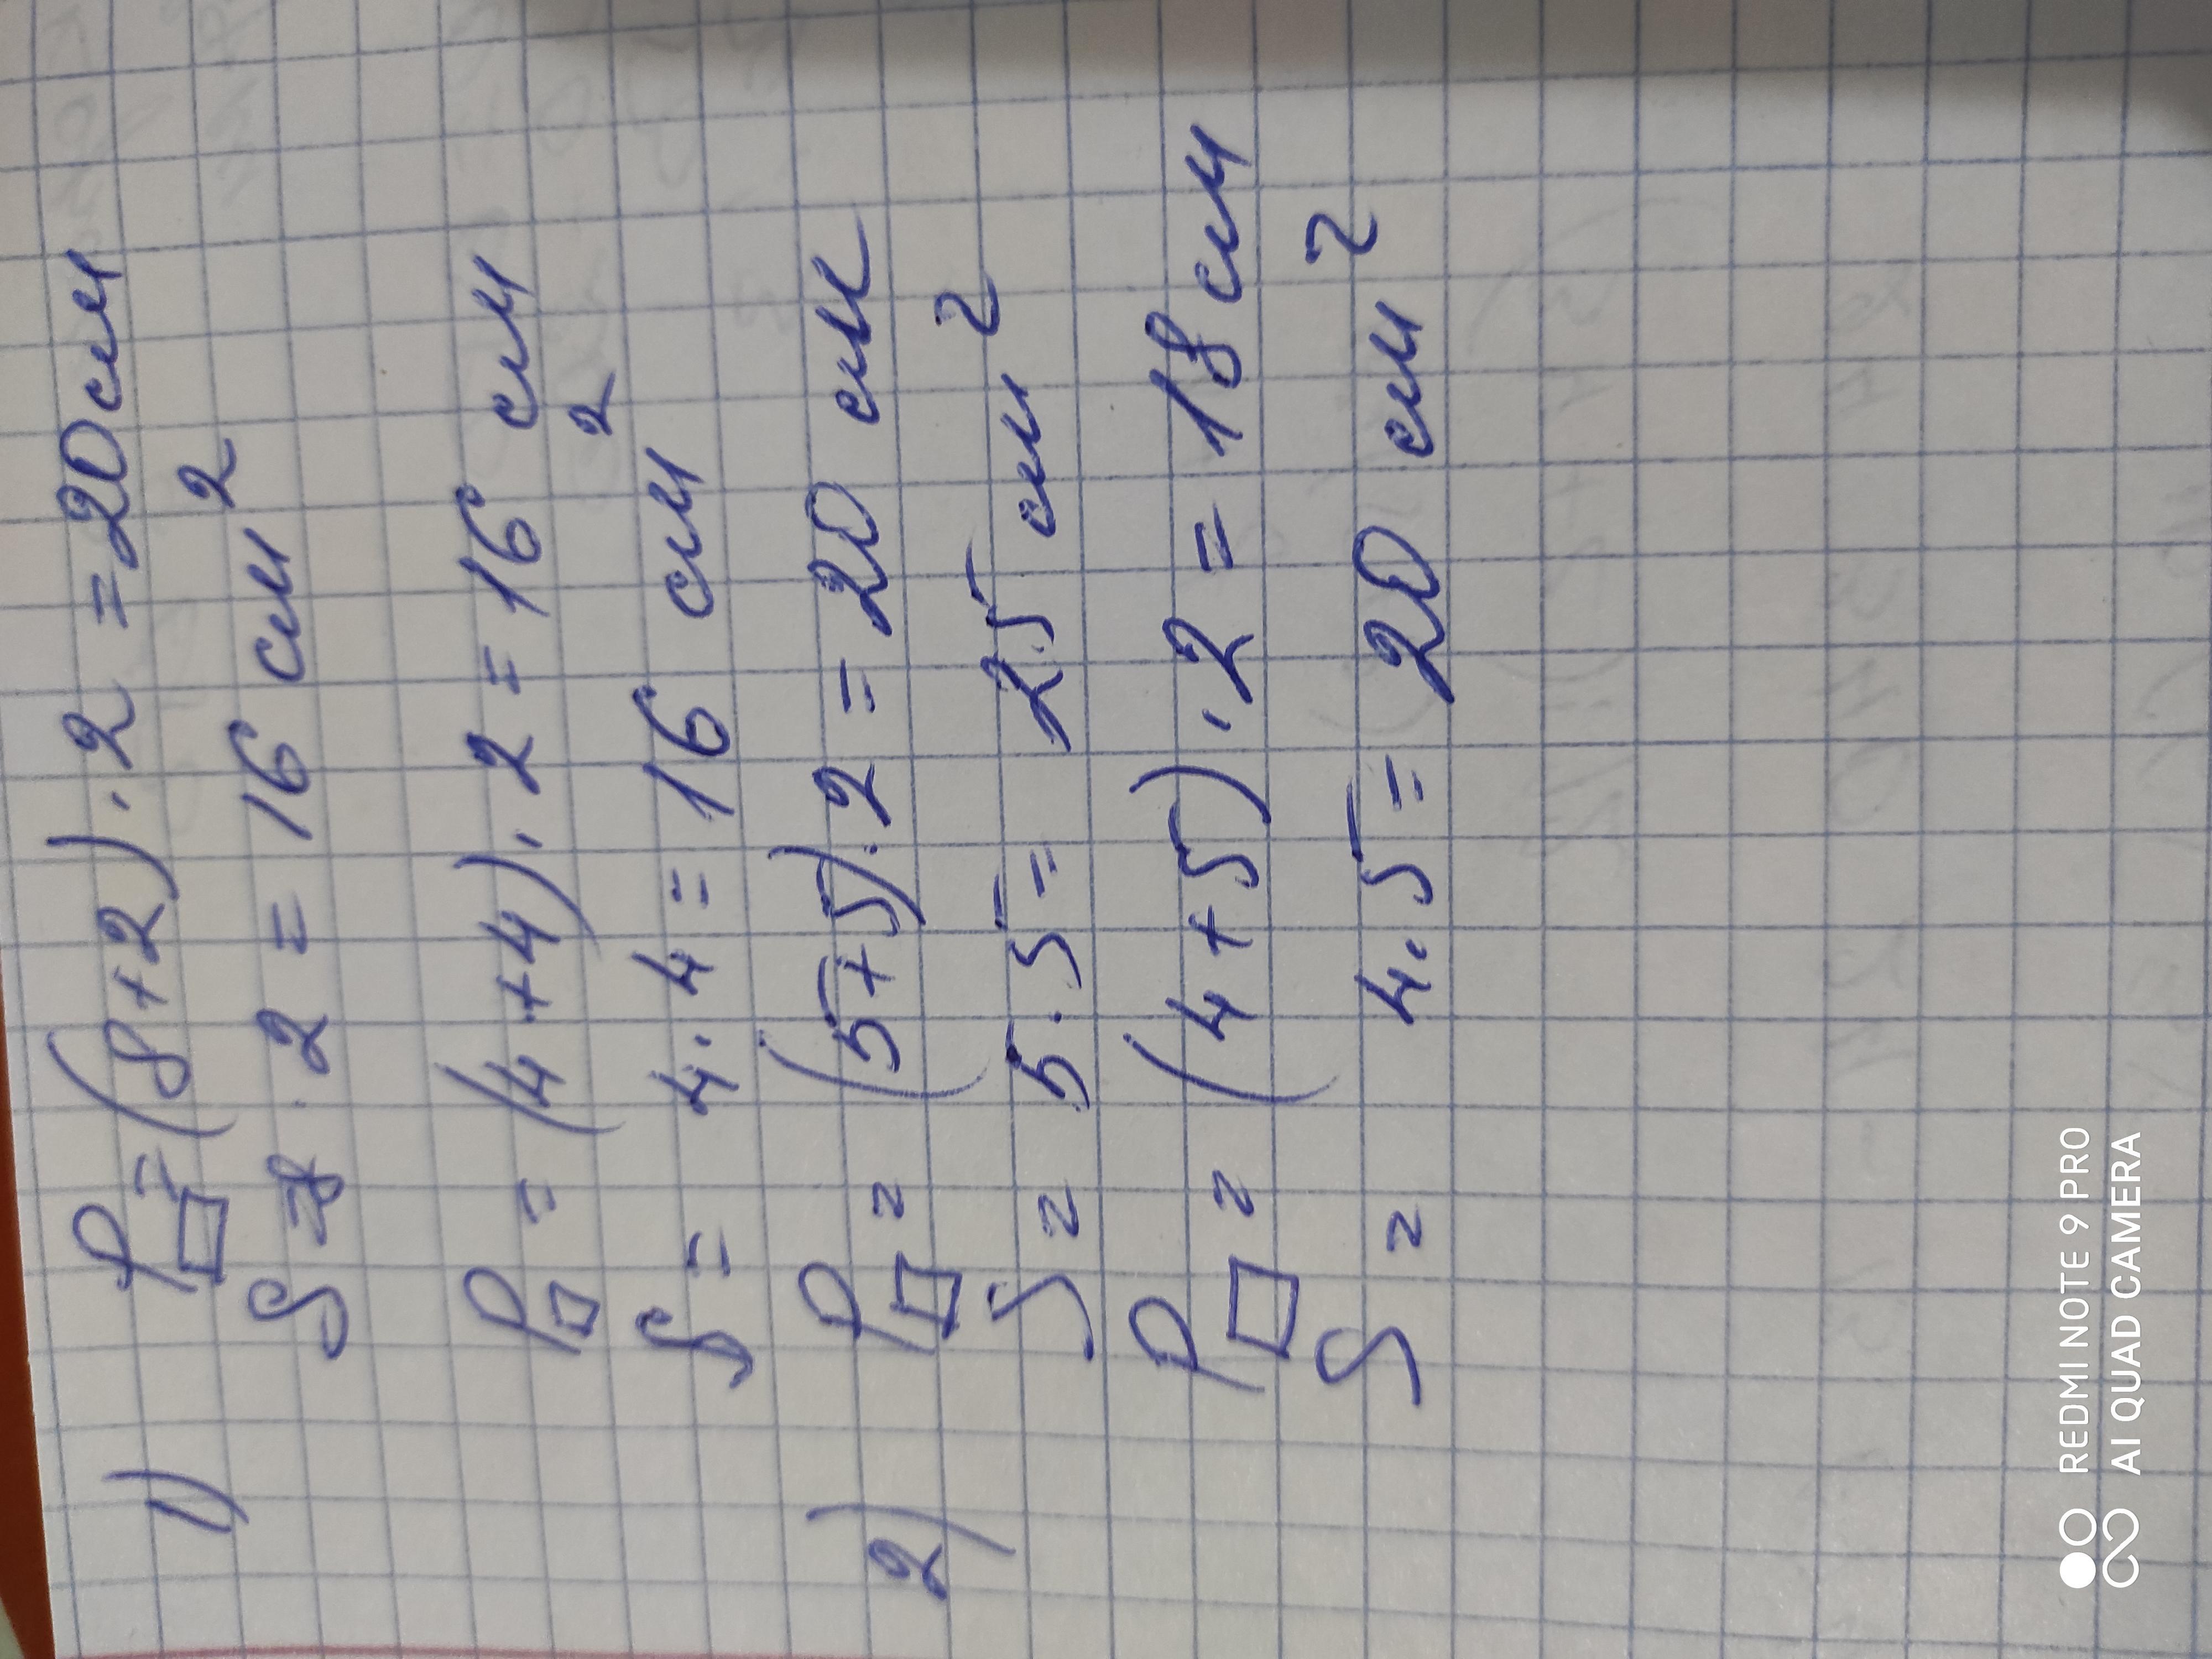 1) P□ = (8+2).2 = 20 см
S = 8 . 2 = 16 см²
P□ = (4+4).2 = 16 см
S = 4.4 = 16 см²
2) P□ = (5+5).2 = 20 см
S = 5.5 = 25 см²
P□ = (4+5).2 = 18 см
S = 4.5 = 20 см²
REDMI NOTE 9 PRO
AI QUAD CAMERA